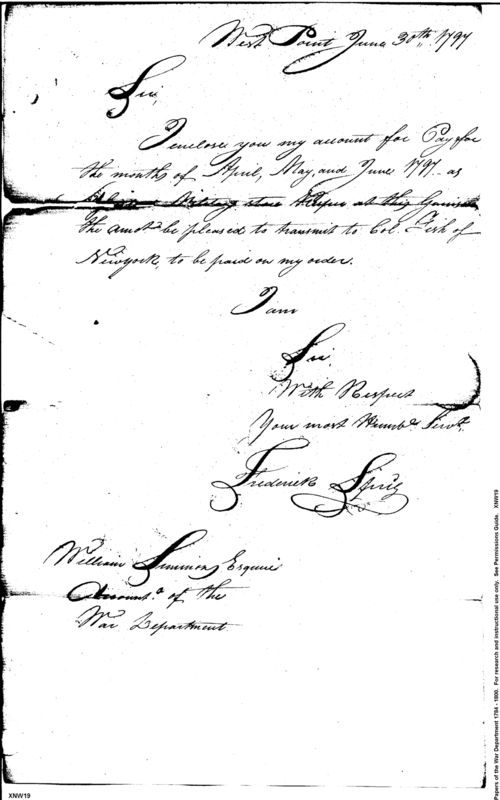 West Point June 30th 1797
Sir,
I enclose you my account for Pay for
the months of April, May, and June 1797 as
store keeper at this Garrison
the amot. be pleased to transmit to Col. Fish of
Newyork, to be paid on my order.
I am
Sir,
With Respect
Your most Humbe. Servt.
Frederick
William Simmons Esquire
Accountt. of the
War Department
XNW19
Papers of the War Department 1784 - 1800. For research and instructional use only. See Permissions Guide. XNW19